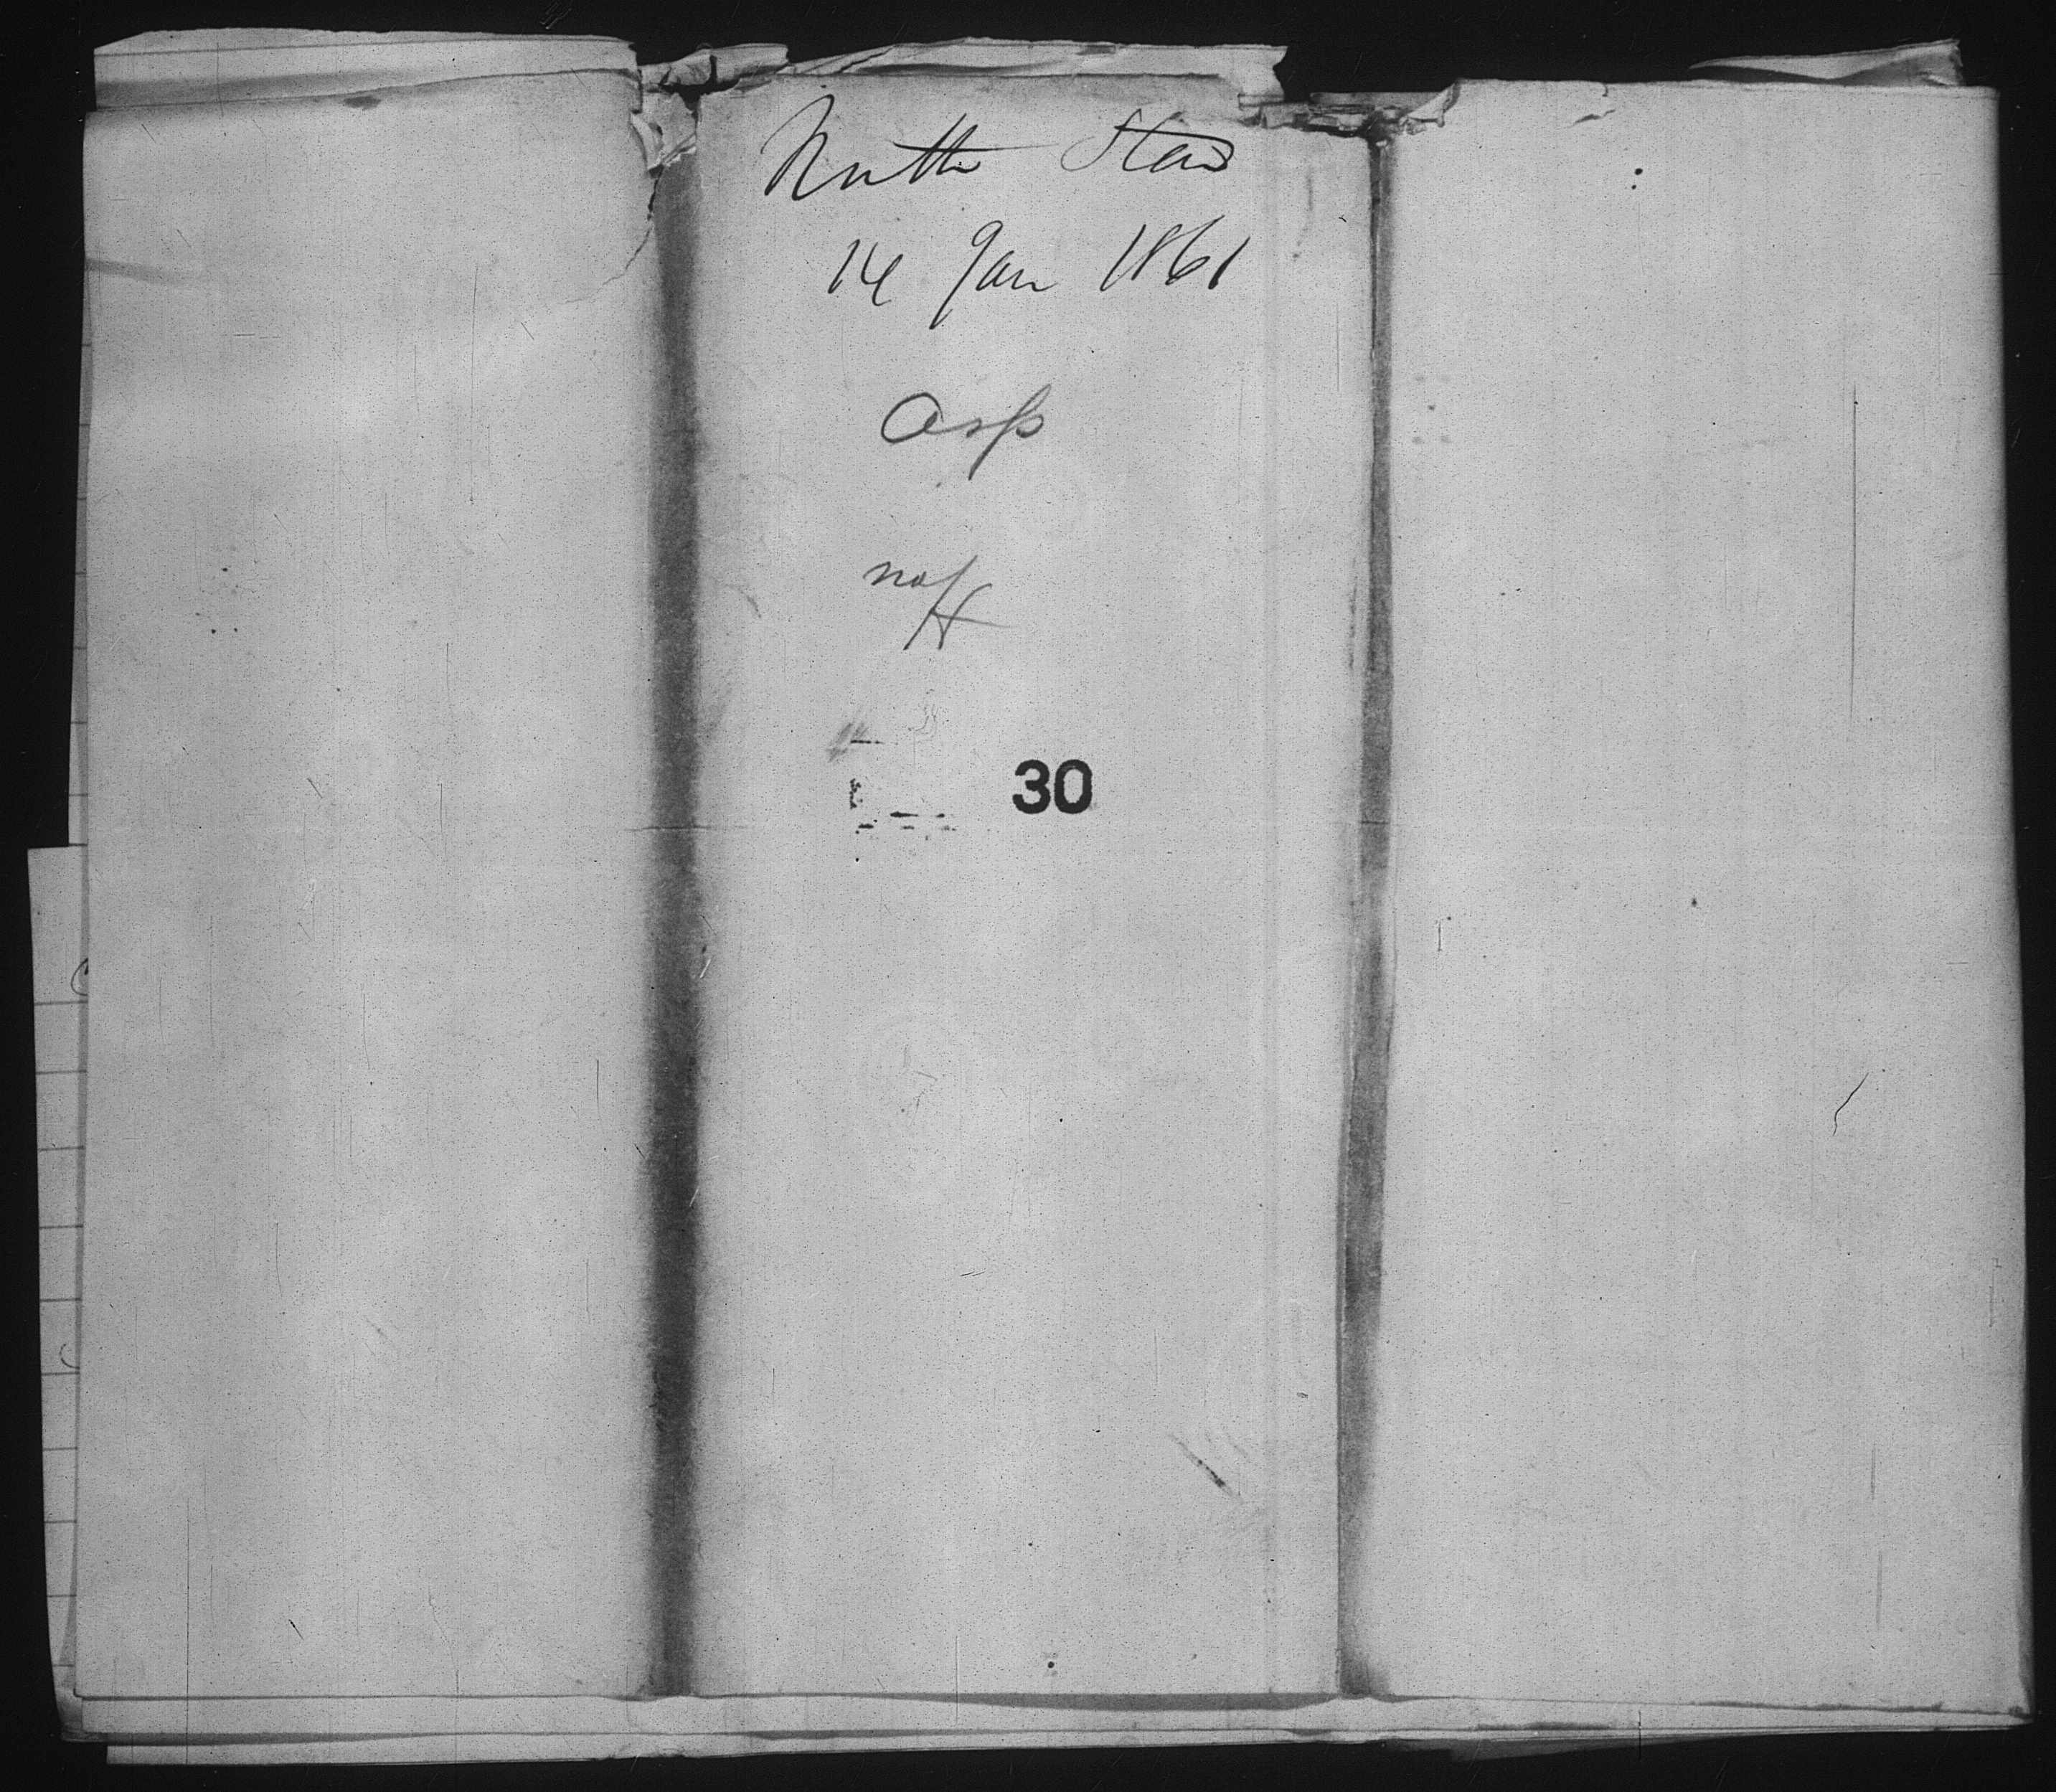 North Star
14 Jan 1861
Asp
no H
30